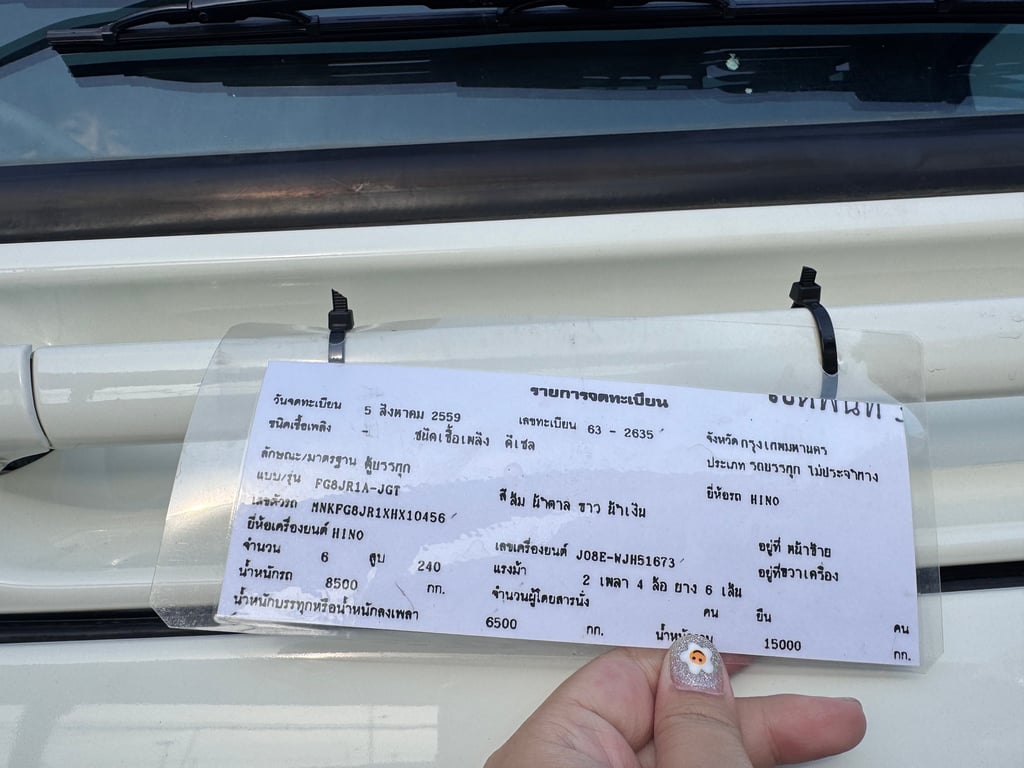 รายการจดทะเบียน
วันจดทะเบียน 5 สิงหาคม 2559 เลขทะเบียน 63 - 2635 จังหวัด กรุงเทพมหานคร
ชนิดเชื้อเพลิง - ชนิดเชื้อเพลิง ดีเซล ประเภท รถบรรทุก ไม่ประจำทาง
ลักษณะ/มาตรฐาน ตู้บรรทุก
แบบ/รุ่น FG8JR1A-JGT สี ส้ม น้ำตาล ขาว น้ำเงิน ยี่ห้อรถ HINO
เลขตัวรถ MNKFG8JR1XHX10456 อยู่ที่ หน้าซ้าย
ยี่ห้อเครื่องยนต์ HINO เลขเครื่องยนต์ J08E-WJH51673 อยู่ที่ขวาเครื่อง
จำนวน 6 สูบ 240 แรงม้า 2 เพลา 4 ล้อ ยาง 6 เส้น
น้ำหนักรถ 8500 กก. จำนวนผู้โดยสารนั่ง คน ยืน คน
น้ำหนักบรรทุกหรือน้ำหนักลงเพลา 6500 กก. 15000 กก.